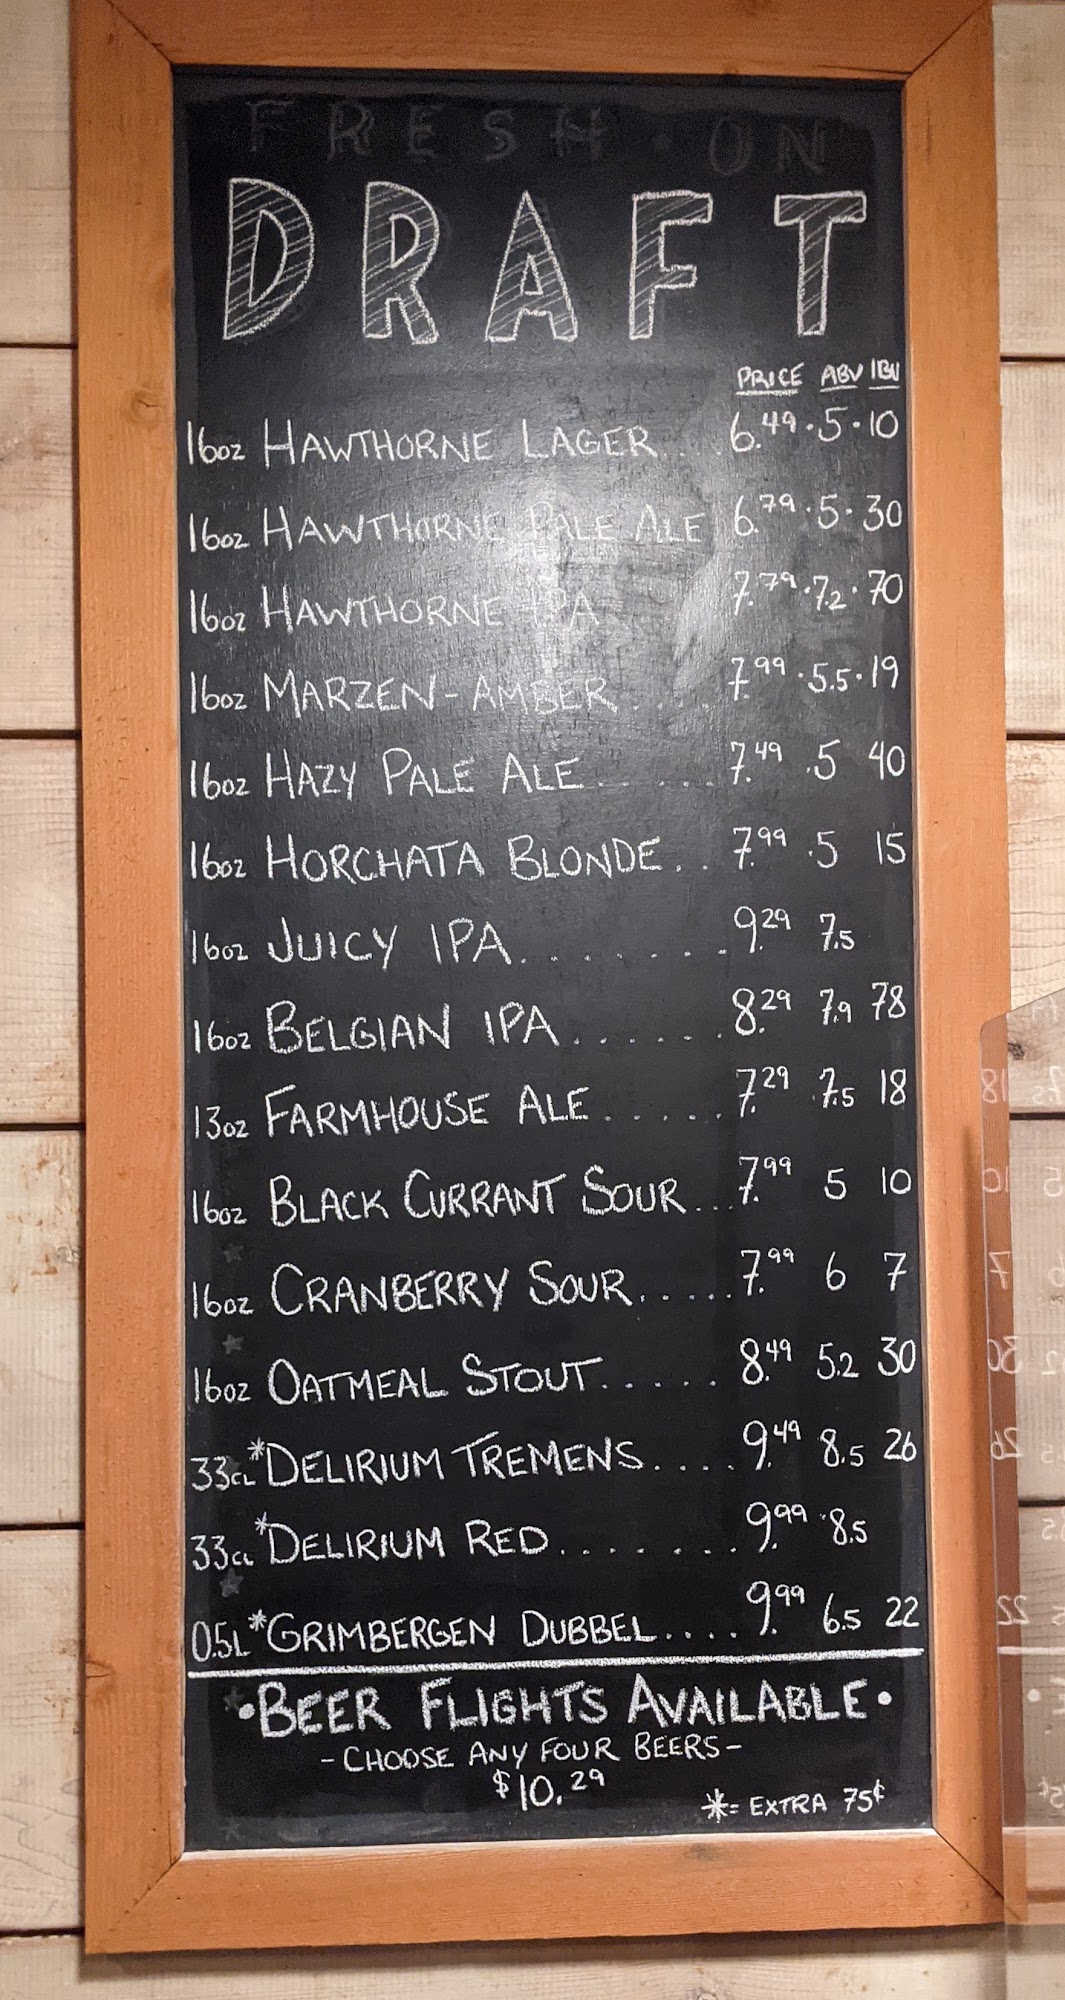 FRESH · ON
DRAFT
PRICE ABV IBU
16oz HAWTHORNE LAGER.... 6.49 · 5 · 10
16oz HAWTHORNE PALE ALE 6.79 · 5 · 30
16oz HAWTHORNE IPA 7.79 · 7.2 · 70
16oz MARZEN-AMBER..... 7.99 · 5.5 · 19
16oz HAZY PALE ALE...... 7.49 .5 40
16oz HORCHATA BLONDE.. 7.99 .5 15
16oz JUICY IPA........ 9.29 7.5
16oz BELGIAN IPA...... 8.29 7.9 78
13oz FARMHOUSE ALE..... 7.29 7.5 18
16oz BLACK CURRANT SOUR... 7.99 5 10
16oz CRANBERRY SOUR..... 7.99 6 7
16oz OATMEAL STOUT...... 8.49 5.2 30
33CL *DELIRIUM TREMENS.... 9.49 8.5 26
33CL *DELIRIUM RED....... 9.99 8.5
0.5L *GRIMBERGEN DUBBEL.... 9.99 6.5 22
• BEER FLIGHTS AVAILABLE •
- CHOOSE ANY FOUR BEERS -
$10.29
*= EXTRA 75¢